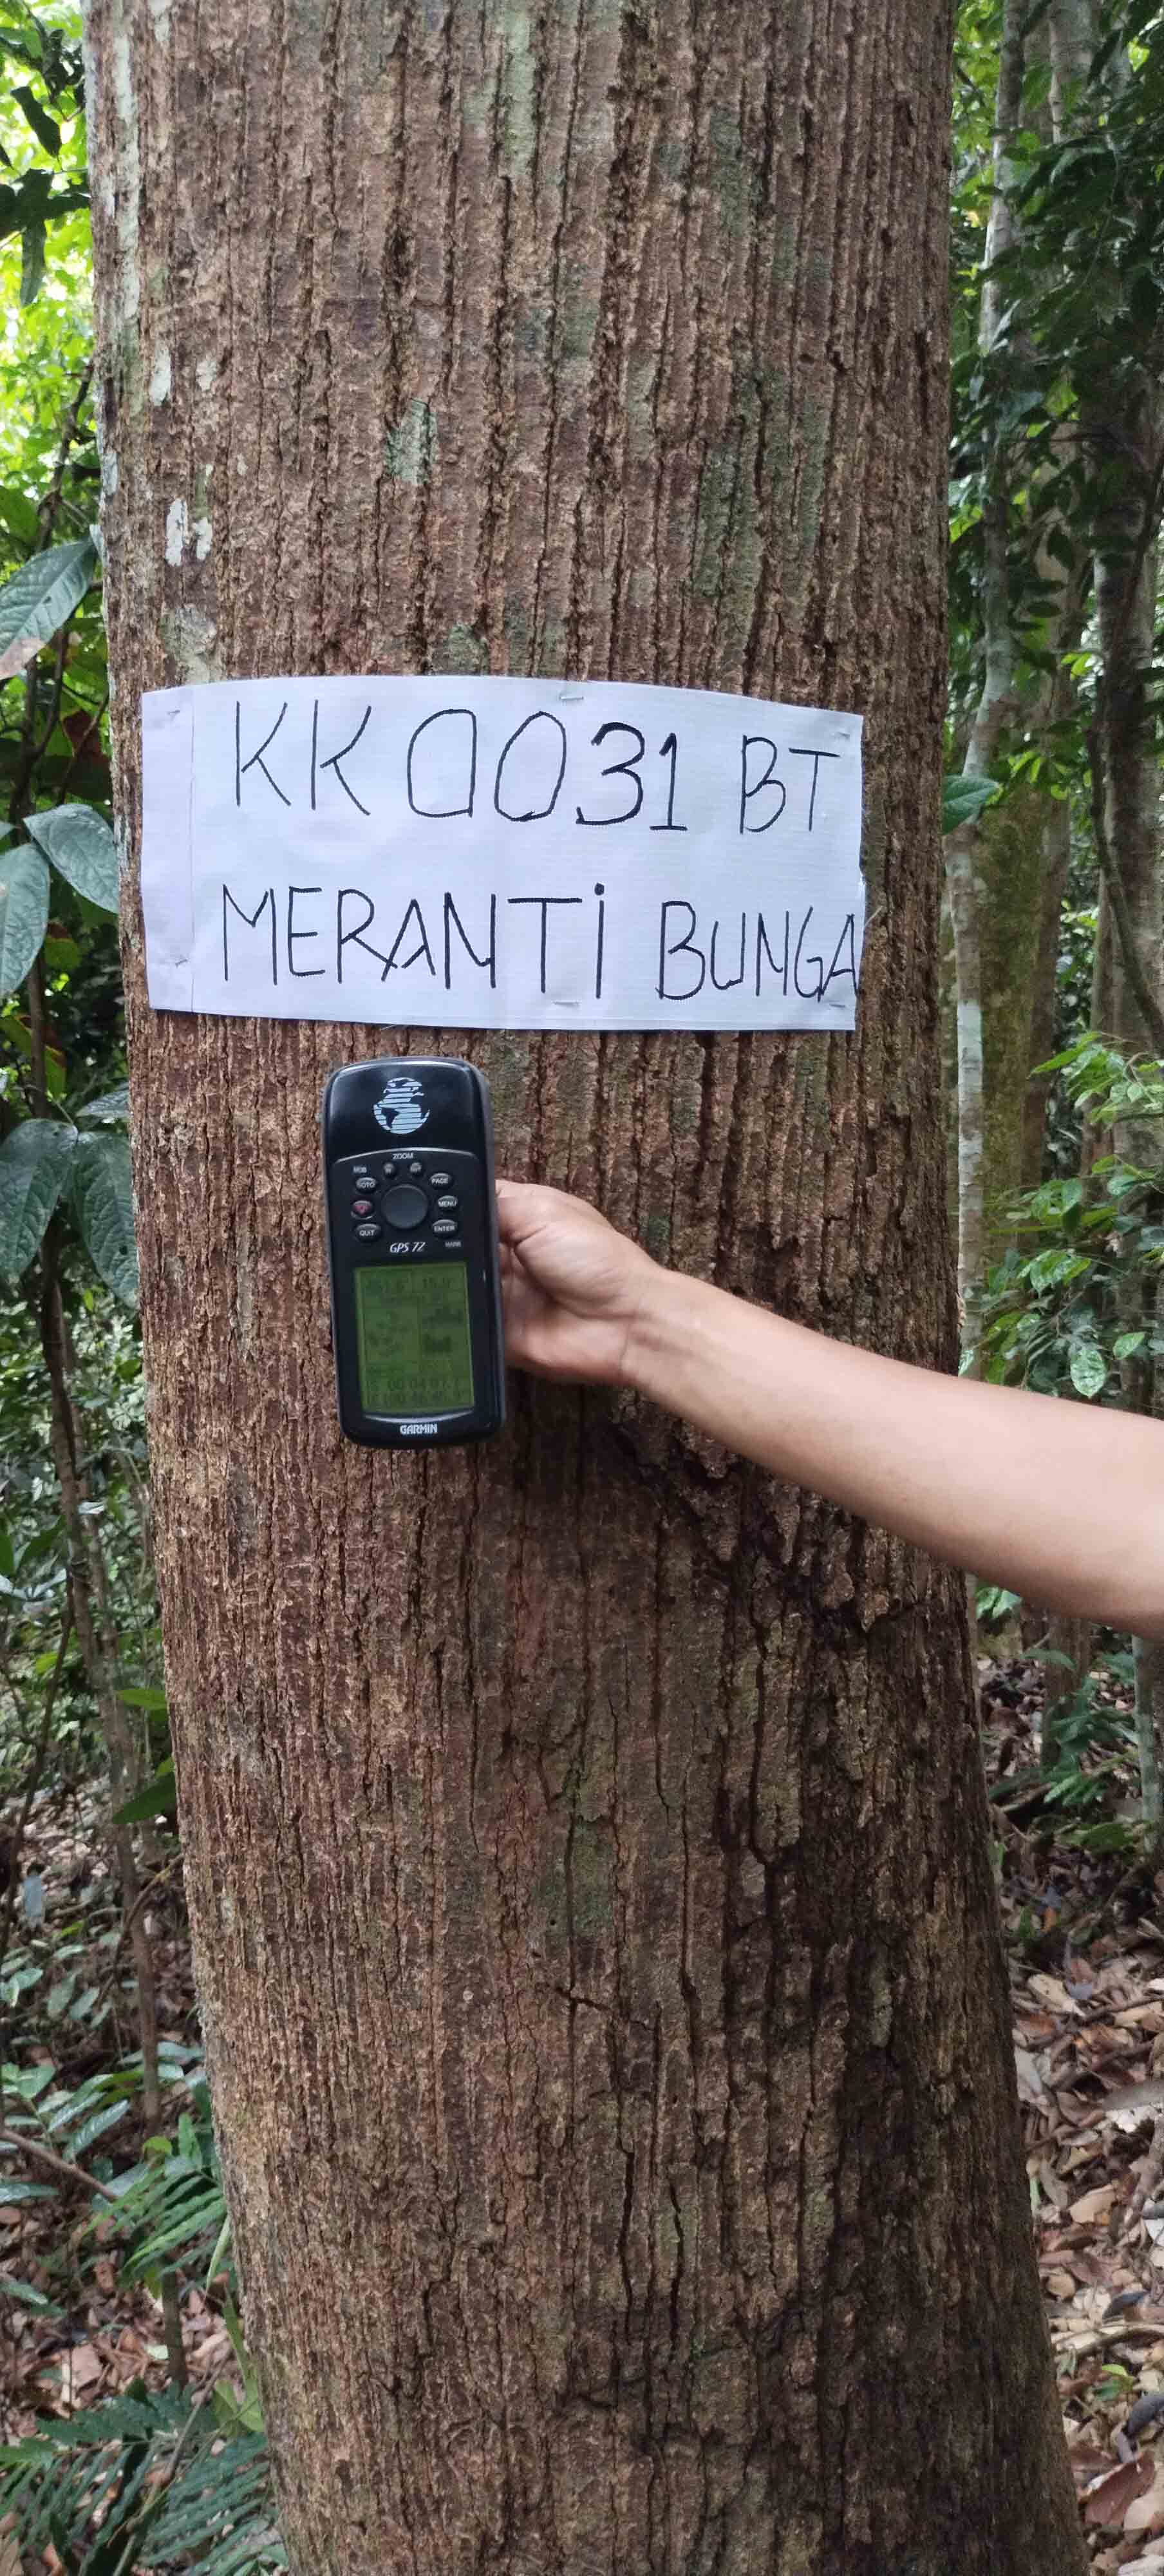 KK 0031 BT
MERANTi BUNGA
ZOOM
MOB
IN
OUT
GOTO
PAGE
MENU
QUIT
ENTER
MARK
GPS 72
GARMIN